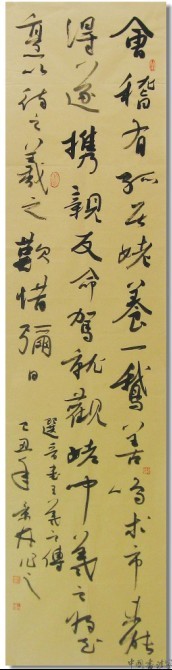 會稽有孤居姥養一鵝善鳴求市未能
得遂携親友命駕就觀姥聞羲之將至
烹以待之羲之歎惜彌日
選晉書王羲之傳
己丑年